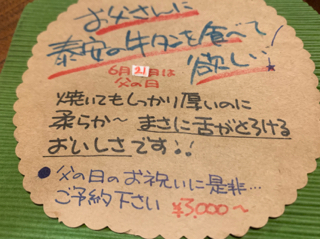 お父さんに
泰安の牛タンを食べて
欲しい!
6月21日は
父の日
焼いてもしっかり厚いのに
柔らか〜まさに舌がとろける
おいしさです!!
●父の日のお祝いに是非…
ご予約下さい ¥3,000〜